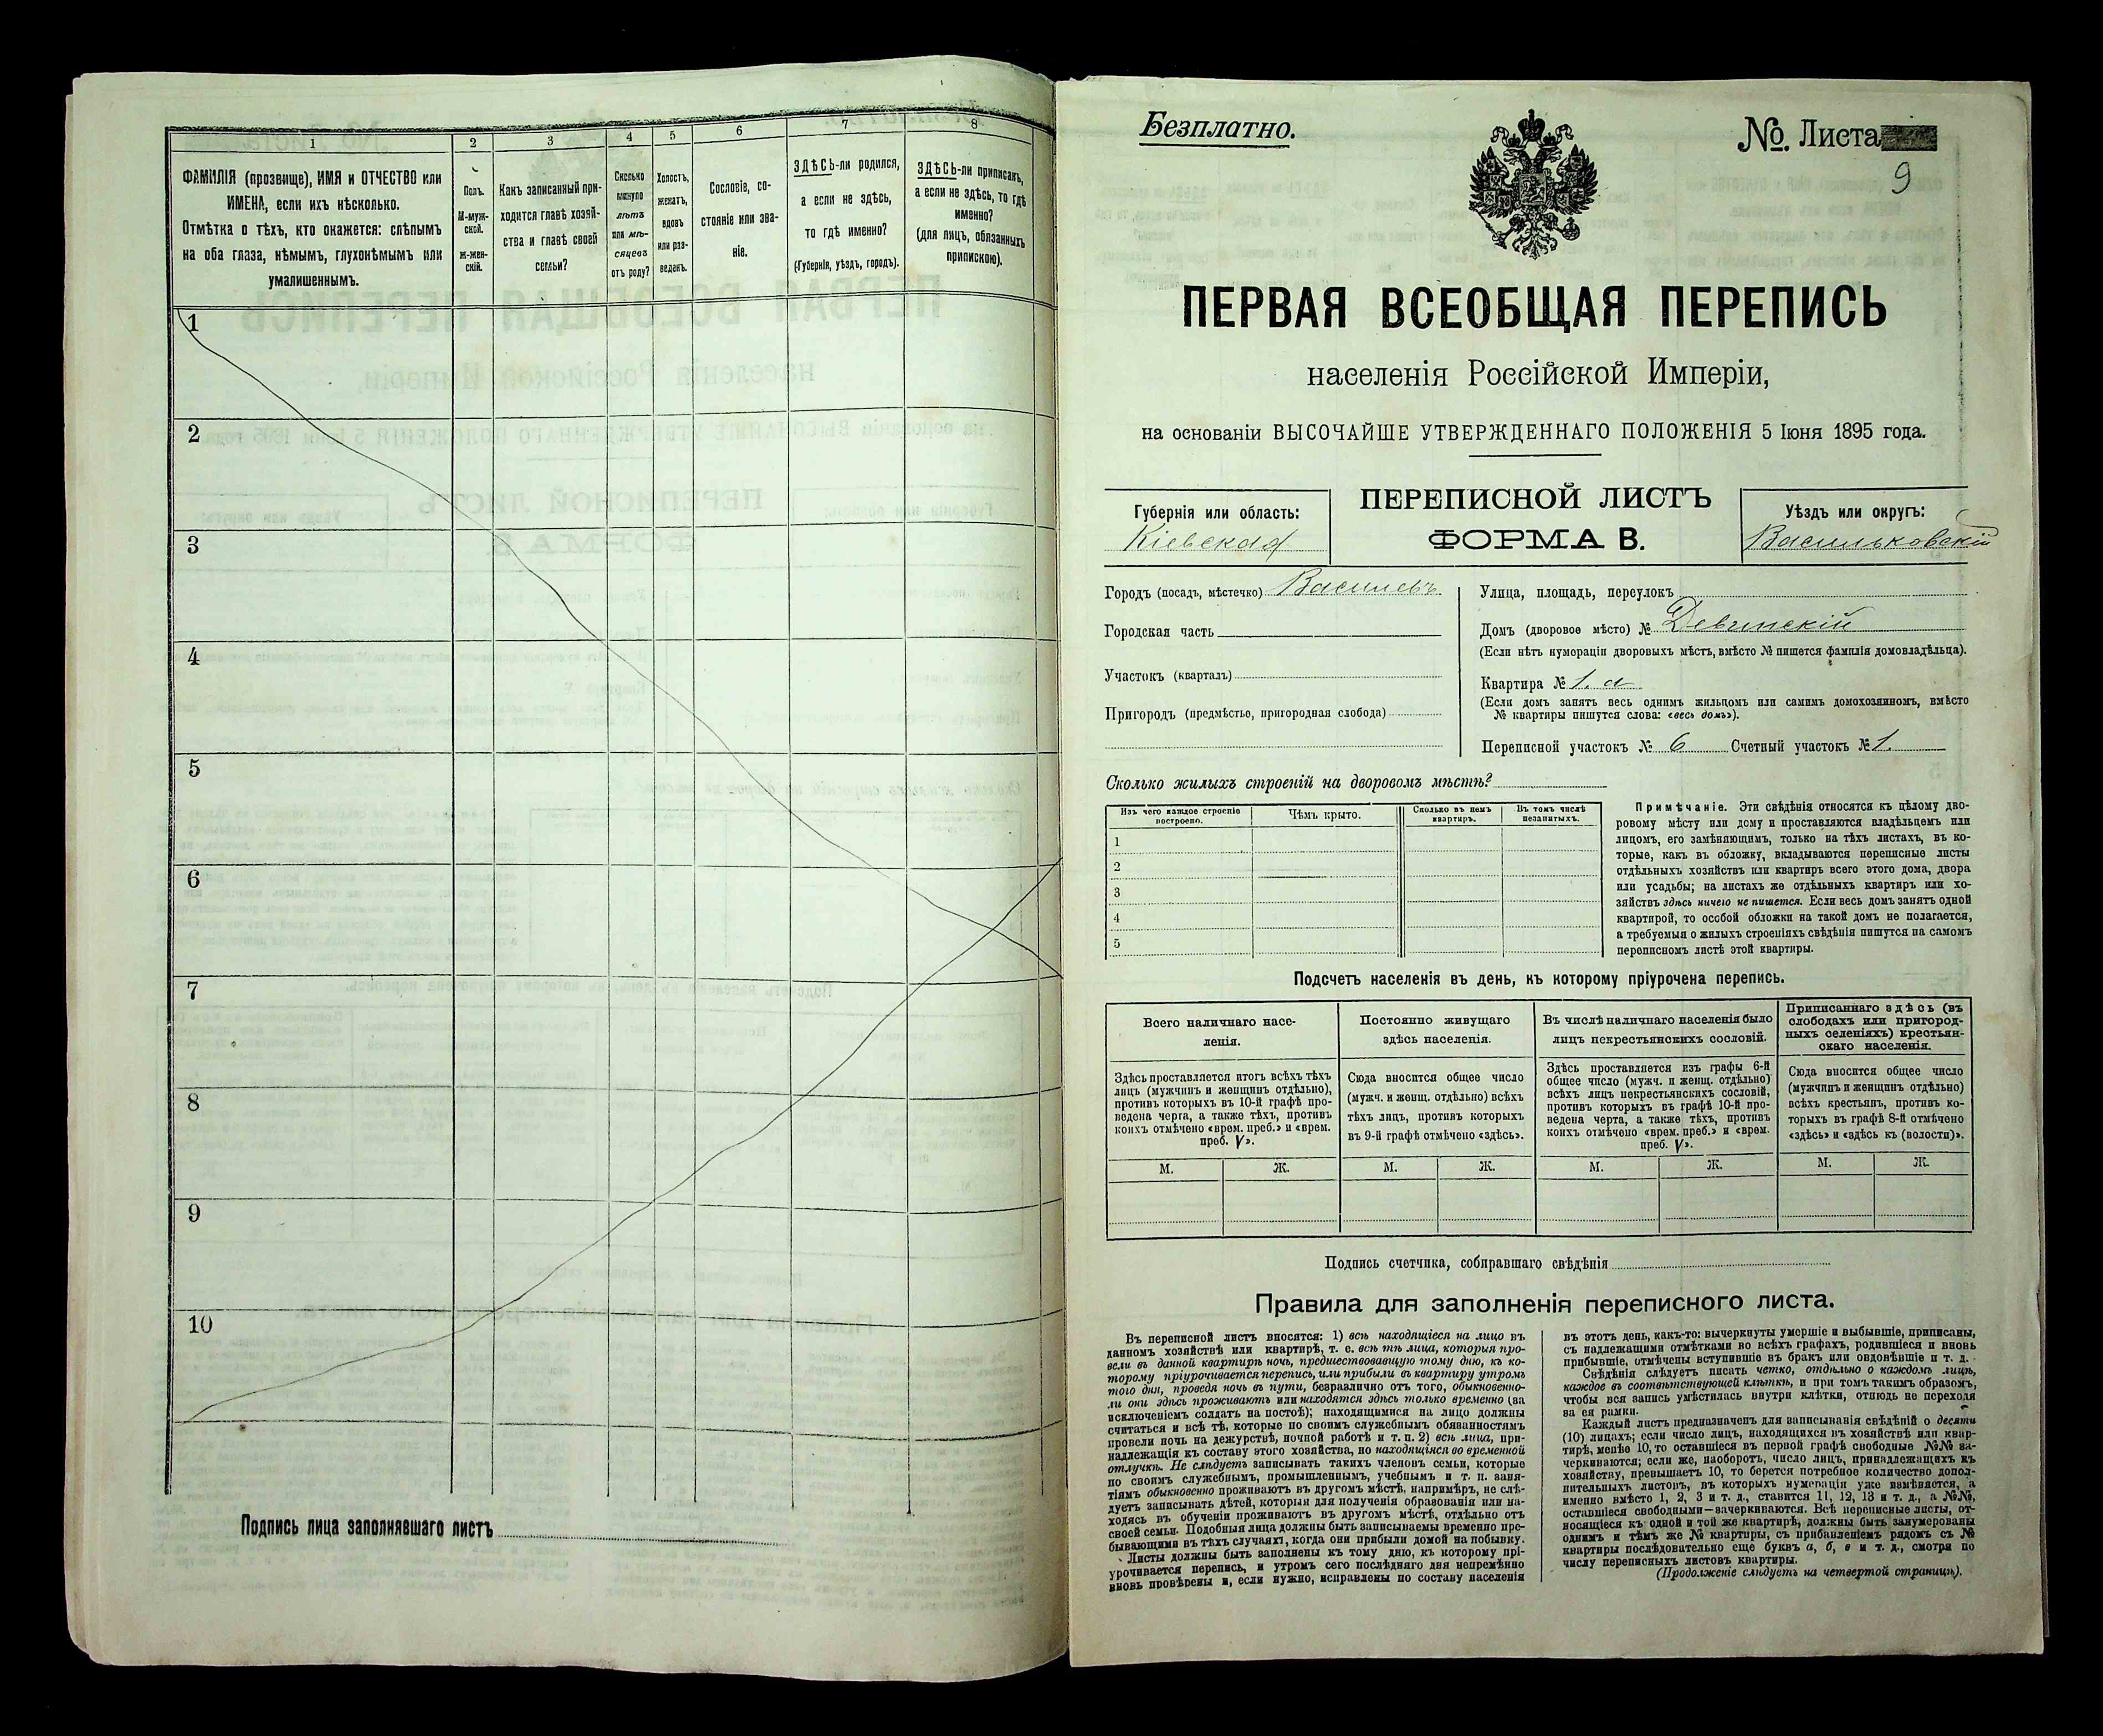 1
ФАМИЛІЯ (прозвище), ИМЯ и ОТЧЕСТВО или
ИМЕНА, если ихъ нѣсколько.
Отмѣтка о тѣхъ, кто окажется: слѣпымъ
на оба глаза, нѣмымъ, глухонѣмымъ или
умалишеннымъ.
2
Полъ.
М-муж-
ской.
Ж-жен-
скій.
3
Какъ записанный при-
ходится главѣ хозяй-
ства и главѣ своей
семьи?
4
Сколько
минуло
лѣтъ
или мѣ-
сяцевъ
отъ роду?
5
Холостъ,
женатъ,
вдовъ
или раз-
веденъ.
6
Сословіе, со-
стояніе или зва-
ніе.
7
ЗДѢСЬ-ли родился,
а если не здѣсь,
то гдѣ именно?
(Губернія, уѣздъ, городъ).
8
ЗДѢСЬ-ли приписанъ,
а если не здѣсь, то гдѣ
именно?
(для лицъ, обязанныхъ
припискою).
1
2
3
4
5
6
7
8
9
10
Подпись лица заполнявшаго листъ
Безплатно.
№ Листа
9
ПЕРВАЯ ВСЕОБЩАЯ ПЕРЕПИСЬ
населенія Россійской Имперіи,
на основаніи ВЫСОЧАЙШЕ УТВЕРЖДЕННАГО ПОЛОЖЕНІЯ 5 Іюня 1895 года.
Губернія или область:
Кіевская
ПЕРЕПИСНОЙ ЛИСТЪ
ФОРМА В.
Уѣздъ или округъ:
Васильковскій
Городъ (посадъ, мѣстечко)
Городская часть
Участокъ (кварталъ)
Пригородъ (предмѣстье, пригородная слобода)
Улица, площадь, переулокъ
Домъ (дворовое мѣсто) №
(Если нѣтъ нумераціи дворовыхъ мѣстъ, вмѣсто № пишется фамилія домовладѣльца).
Квартира № 1. а
(Если домъ занятъ весь однимъ жильцомъ или самимъ домохозяиномъ, вмѣсто
№ квартиры пишутся слова: «весь домъ»).
Переписной участокъ № 6 Счетный участокъ № 1.
Сколько жилыхъ строеній на дворовомъ мѣстѣ?
Изъ чего каждое строеніе
построено.
Чѣмъ крыто.
Сколько въ немъ
квартиръ.
Въ томъ числѣ
незанятыхъ.
1
2
3
4
5
Примѣчаніе. Эти свѣдѣнія относятся къ цѣлому дво-
ровому мѣсту или дому и проставляются владѣльцемъ или
лицомъ, его замѣняющимъ, только на тѣхъ листахъ, въ ко-
торые, какъ въ обложку, вкладываются переписные листы
отдѣльныхъ хозяйствъ или квартиръ всего этого дома, двора
или усадьбы; на листахъ же отдѣльныхъ квартиръ или хо-
зяйствъ здѣсь ничего не пишется. Если весь домъ занятъ одной
квартирой, то особой обложки на такой домъ не полагается,
а требуемыя о жилыхъ строеніяхъ свѣдѣнія пишутся на самомъ
переписномъ листѣ этой квартиры.
Подсчетъ населенія въ день, къ которому пріурочена перепись.
Всего наличнаго насе-
ленія.
Здѣсь проставляется итогъ всѣхъ тѣхъ
лицъ (мужчинъ и женщинъ отдѣльно),
противъ которыхъ въ 10-й графѣ про-
ведена черта, а также тѣхъ, противъ
коихъ отмѣчено «врем. преб.» и «врем.
преб. V».
М. Ж.
Постоянно живущаго
здѣсь населенія.
Сюда вносится общее число
(мужч. и женщ. отдѣльно) всѣхъ
тѣхъ лицъ, противъ которыхъ
въ 9-й графѣ отмѣчено «здѣсь».
М. Ж.
Въ числѣ наличнаго населенія было
лицъ некрестьянскихъ сословій.
Здѣсь проставляется изъ графы 6-й
общее число (мужч. и женщ. отдѣльно)
всѣхъ лицъ некрестьянскихъ сословій,
противъ которыхъ въ графѣ 10-й про-
ведена черта, а также тѣхъ, противъ
коихъ отмѣчено «врем. преб.» и «врем.
преб. V».
М. Ж.
Приписаннаго здѣсь (въ
слободахъ или пригород-
ныхъ селеніяхъ) крестьян-
скаго населенія.
Сюда вносится общее число
(мужчинъ и женщинъ отдѣльно)
всѣхъ крестьянъ, противъ ко-
торыхъ въ графѣ 8-й отмѣчено
«здѣсь» и «здѣсь къ (волости)».
М. Ж.
Подпись счетчика, собиравшаго свѣдѣнія
Правила для заполненія переписного листа.
Въ переписной листъ вносятся: 1) всѣ находящіеся на лицо въ
данномъ хозяйствѣ или квартирѣ, т. е. всѣ тѣ лица, которыя про-
вели въ данной квартирѣ ночь, предшествовавшую тому дню, къ ко-
торому пріурочивается перепись, или прибыли въ квартиру утромъ
того дня, проведя ночь въ пути, безразлично отъ того, обыкновенно-
ли они здѣсь проживаютъ или находятся здѣсь только временно (за
исключеніемъ солдатъ на постоѣ); находящимися на лицо должны
считаться и всѣ тѣ, которые по своимъ служебнымъ обязанностямъ
провели ночь на дежурствѣ, ночной работѣ и т. п. 2) всѣ лица, при-
надлежащія къ составу этого хозяйства, но находящіяся во временной
отлучкѣ. Не слѣдуетъ записывать такихъ членовъ семьи, которые
по своимъ служебнымъ, промышленнымъ, учебнымъ и т. п. заня-
тіямъ обыкновенно проживаютъ въ другомъ мѣстѣ, напримѣръ, не слѣ-
дуетъ записывать дѣтей, которыя для полученія образованія или на-
ходясь въ обученіи проживаютъ въ другомъ мѣстѣ, отдѣльно отъ
своей семьи. Подобныя лица должны быть записываемы временно пре-
бывающими въ тѣхъ случаяхъ, когда они прибыли домой на побывку.
Листы должны быть заполнены къ тому дню, къ которому прі-
урочивается перепись, и утромъ сего послѣдняго дня непремѣнно
вновь провѣрены и, если нужно, исправлены по составу населенія
въ этотъ день, какъ-то: вычеркнуты умершіе и выбывшіе, приписаны,
съ надлежащими отмѣтками во всѣхъ графахъ, родившіеся и вновь
прибывшіе, отмѣчены вступившіе въ бракъ или овдовѣвшіе и т. д.
Свѣдѣнія слѣдуетъ писать четко, отдѣльно о каждомъ лицѣ,
каждое въ соотвѣтствующей клѣткѣ, и при томъ такимъ образомъ,
чтобы вся запись умѣстилась внутри клѣтки, отнюдь не переходя
за ея рамки.
Каждый листъ предназначенъ для записыванія свѣдѣній о десяти
(10) лицахъ; если число лицъ, находящихся въ хозяйствѣ или квар-
тирѣ, менѣе 10, то оставшіеся въ первой графѣ свободные №№ за-
черкиваются; если же, наоборотъ, число лицъ, принадлежащихъ къ
хозяйству, превышаетъ 10, то берется потребное количество допол-
нительныхъ листовъ, въ которыхъ нумерація уже измѣняется, а
именно вмѣсто 1, 2, 3 и т. д., ставится 11, 12, 13 и т. д., а №№,
оставшіеся свободными—зачеркиваются. Всѣ переписные листы, от-
носящіеся къ одной и той же квартирѣ, должны быть занумерованы
однимъ и тѣмъ же № квартиры, съ прибавленіемъ рядомъ съ №
квартиры послѣдовательно еще буквъ а, б, в и т. д., смотря по
числу переписныхъ листовъ квартиры.
(Продолженіе слѣдуетъ на четвертой страницѣ).